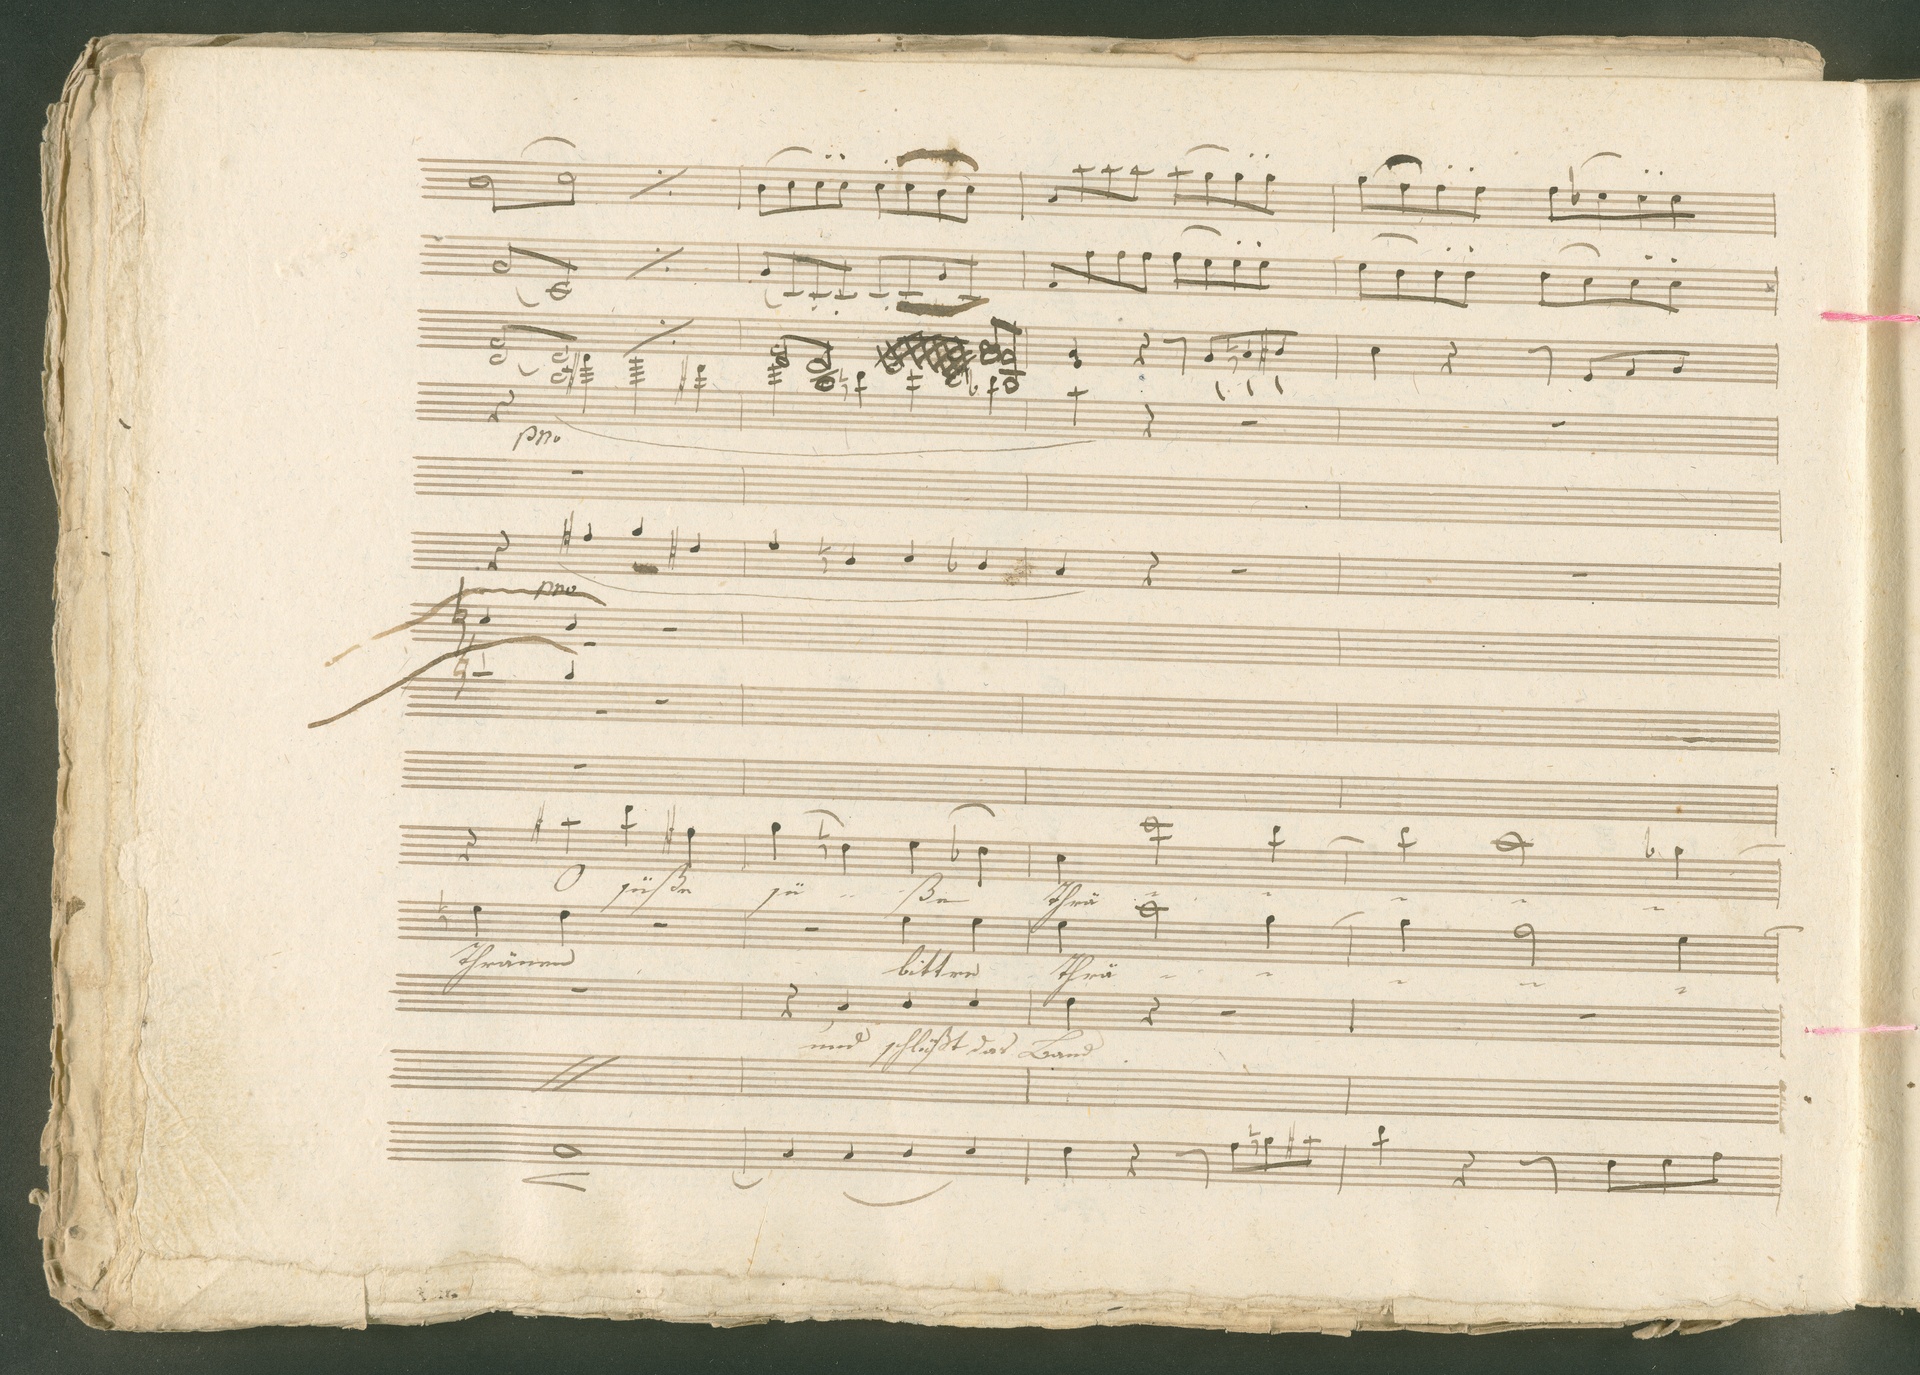 pno
pno
O süße sü - - ße Thrä - - - - -
Thränen bittre Thrä - - - - -
und schlüßt das Band